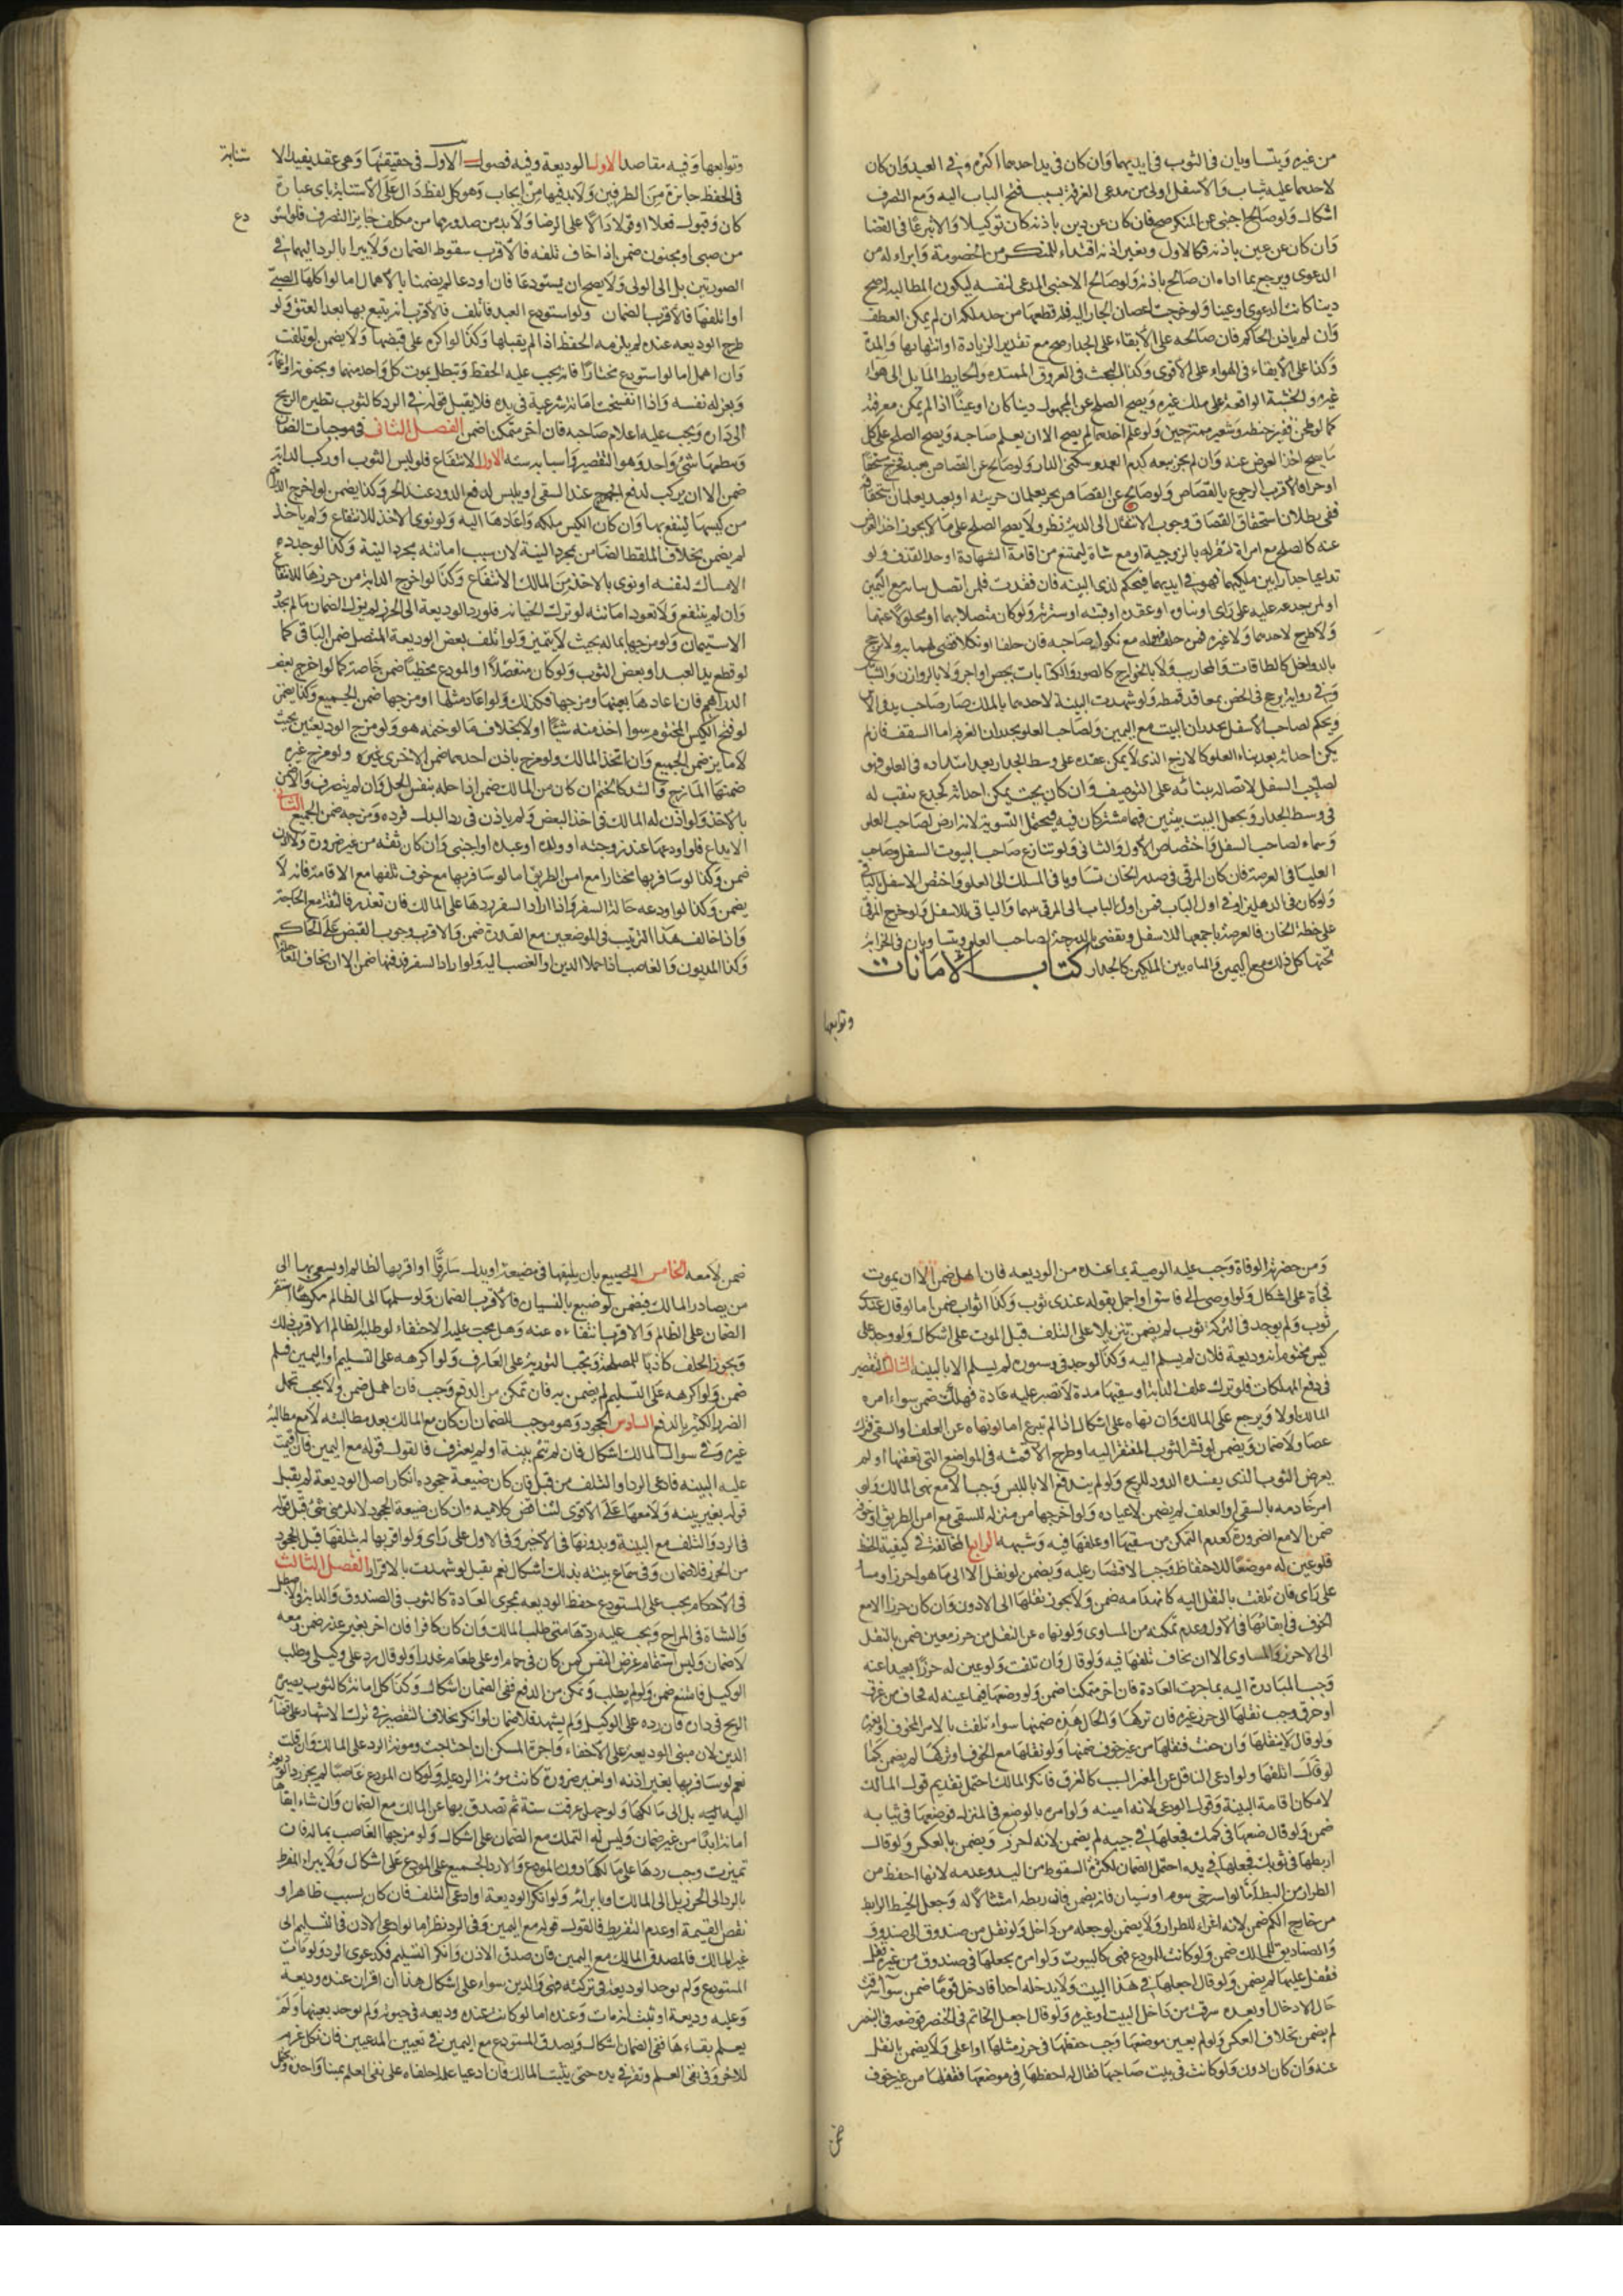 من غيره ويتساويان في الثوب في ايديهما وان كان في يد احدهما اكثره وفي العبد وان كان
لاحدهما عليه ثياب والاسفل اولى من مدعى الغرفة بسبب فتح الباب اليه ومع التصرف
اشكال ولو صالح اجنبي عن المنكر صح فان كان عن دين باذنه كان توكيلا والا تبرعا في القضا
وان كان عن عين باذنه فكالاول وبغير اذنه افتداء للمنكر من الخصومة وابراء له من
الدعوى ويرجع بما اداه ان صالح باذنه ولو صالح الاجنبي المدعى لنفسه ليكون المطالبه له صح
دينا كانت الدعوى او عينا ولو خرجت اغصان الجار اليه فله قطعها من حد ملكه ان لم يمكن العطف
وان لم ياذن الحاكم فان صالحه على الابقاء على الجدار صح مع تقدير الزيادة او انتهائها والمدة
وكذا على الابقاء في الهواء على الاقوى وكذا البحث في العروق الممتده والحايط المايل الى هواء
غيره والخشبة الواقعة على ملك غيره ويصح الصلح عن المجهول دينا كان او عينا اذا لم يمكن معرفته
كما لو طحن قفيز حنطه وشعير ممتزجين ولو علم احدهما لم يصح الا ان يعلم صاحبه ويصح الصلح على كل
ما يصح اخذ العوض عنه وان لم يجز بيعه كدم العمد وسكنى الدار ولو صالح عن القصاص بعبد فخرج مستحقا
او حرا فالاقرب الرجوع بالقصاص ولو صالح عن القصاص بحر يعلمان حريته او بعبد يعلمان استحقاقه
ففي بطلان استحقاق القصاق وجوب الانتقال الى الدية نظر ولا يصح الصلح على ما لا يجوز اخذ العوض
عنه كالصلح مع امراة لتقر له بالزوجية او مع شاهد ليمتنع من اقامة الشهادة او حد القذف ولو
تداعيا جدارا بين ملكيهما فهو في ايديهما فيحكم لذي البينه فان فقدت فلمن اتصل بنائه مع اليمين
او لمن جدعه عليه على راى او بناؤه او عقده او قبته او سترته ولو كان متصلا بهما او محلولا عنهما
ولا طرح لاحدهما ولا غيره فمن حلف فهو له مع نكول صاحبه فان حلفا او نكلا قضى لهما به ولا ترجيح
بالدواخل كالطاقات والمحاريب ولا بالخوارج كالصور والكتابات بجص او اجر ولا بالروازن والشباك
وفي رواية يرجح في الخص بمعاقد قمطه ولو شهدت البينة لاحدهما بالملك صار صاحب يد في الاس
ويحكم لصاحب الاسفل بجدران البيت مع اليمين ولصاحب العلو بجدران الغرفة اما السقف فان لم
يكن احداثه بعد بناء العلو كالازج الذي لا يمكن عقده على وسط الجدار بعد امتداده في العلو فهو
لصاحب السفل لاتصاله ببنائه على الترصيف وان كان بحيث يمكن احداثه كجذع ينقب له
في وسط الجدار ويجعل البيت بيتين فهما مشتركان فيه فيحتمل التسوية لانه ارض لصاحب العلو
وسماء لصاحب السفل واختصاص الاول والثاني ولو تنازع صاحب البيوت السفل وصاحب
العليا في العرصة فان كان المرقى في صدر الخان تساويا في المسلك الى العلو واختص الاسفل بالباقي
ولو كان في الدهليز او في اول الباب فمن اول الباب الى المرقى بينهما والباقي للاسفل ولو خرج المرقى
على خطة الخان فالعرصة باجمعها للاسفل ويقضى بالدرجة لصاحب العلو ويتساويان في الخزانة
تحتها كل ذلك مع اليمين والماه بين الملكين كالجدار كتاب الامانات
وتوابعها
وتوابعها وفيه مقاصد الاول الوديعة وفيه فصول الاول في حقيقتها وهي عقد يفيد الا ستنابة
في الحفظ جايزة من الطرفين ولا بد فيها من ايجاب وهو كل لفظ دال على الاستنابة باى عبارة
كان وقبول فعلا او قولا دالا على الرضا ولا بد من صدورهما من مكلف جايز التصرف فلو استو دع
من صبي او مجنون ضمن الا اذا خاف تلفه فالاقرب سقوط الضمان ولا يبرا بالرد اليهما في
الصورتين بل الى الولي ولا يصح ان يستودعا فان اودعا لم يضمنا بالاهمال اما لو اكلها الصبي
او اتلفها فالاقرب الضمان ولو استودع العبد فاتلف فالاقرب انه يتبع بها بعد العتق ولو
طرح الوديعه عنده لم يلزمه الحفظ اذا لم يقبلها وكذا لو اكره على قبضها ولا يضمن لو تلفت
وان اهمل اما لو استودع مختارا فانه يجب عليه الحفظ وتبطل بموت كل واحد منهما وبجنونه واغمائه
وبعزله نفسه واذا انفسخت امانة شرعية في يده فلا يقبل قوله في الرد كالثوب تطيره الريح
الى داره ويجب عليه اعلام صاحبه فان اخر متمكنا ضمن الفصل الثاني في موجبات الضمان
وينظمها شئ واحد وهو التقصير واسبابه سته الاول الانتفاع فلو لبس الثوب او ركب الدابة
ضمن الا ان يركب لدفع الجموح عند السقي او يلبس لدفع الدود عند الحر وكذا يضمن لو اخرج الدراهم
من كيسها لينتفع بها وان كان الكيس ملكه واعادها اليه ولو نوى الاخذ للانتفاع ولم ياخذ
لم يضمن بخلاف الملتقط الضامن بمجرد النية لان سبب امانته مجرد النية وكذا لو جدد
الامساك لنفسه او نوى بالاخذ من المالك الانتفاع وكذا لو اخرج الدابة من حرزها للانتفاع
وان لم ينتفع ولا تعود امانته لو ترك الخيانه فلو رد الوديعة الى الحرز لم يزل الضمان ما لم يجدد
الاستيمان ولو مزجها بماله بحيث لا يتميز ولو اتلف بعض الوديعة المتصل ضمن الباقى كما
لو قطع يد العبد او بعض الثوب ولو كان منفصلا او المودع مخطئا ضمن خاصة كما لو اخرج بعض
الدراهم فان اعادها بعينها ومزجها فكذلك ولو اعاد مثلها او مزجها ضمن الجميع وكذا يضمن
لو فتح الكيس المختوم سوا اخذ منه شيئا او لا بخلاف ما لو ختمه هو ولو مزج الوديعتين بحيث
لا مايز ضمن الجميع وان اتخذ المالك ولو مزج باذن احدهما ضمن الاخرى غيره ولو مزج غيره
ضمنها المازج والشد كالختم ان كان من المالك ضمن اذا حله بنفس الحل وان لم يتصرف والا ضمن
بالاخذ ولو اذن له المالك في اخذ البعض ولم ياذن في رد البدل فرده ومزجه ضمن الجميع الثاني
الايداع فلو اودعها عند زوجته او ولده او عبده او اجنبي وان كان ثقة من غير ضرورة ولا اذن
ضمن وكذا لو سافر بها مختارا مع امن الطريق اما لو سافر بها مع خوف تلفها مع الاقامة فانه لا
يضمن وكذا لو اودعه حالة السفر واذا اراد السفر ردها على المالك فان تعذر فالثقة مع الحاجة
واذا خالف هذا الترتيب في الموضعين مع القدرة ضمن والاقرب وجوب القبض على الحاكم
وكذا المديون والغاصب اذا حملا الدين او الغصب اليه ولو اراد السفر فدفنها ضمن الا ان يخاف المعاجلة
ومن حضرته الوفاة وجب عليه الوصية بما عنده من الوديعه فان اهمل ضمن الا ان يموت
فجاة على اشكال ولو اوصى الى فاسق او اجمل بقوله عندي ثوب وكذا اثواب ضمن اما لو قال عندي
ثوب ولم يوجد في التركة ثوب لم يضمن تنزيلا على التلف قبل الموت على اشكال ولو وجد على
كيس مختوم انه وديعة فلان لم يسلم اليه وكذا لو وجد في دستوره لم يسلم الا بالبينه الثالث التقصير
في دفع المهلكات فلو ترك علف الدابة او سقيها مدة لا تصبر عليه عادة فهلكت ضمن سواء امره
المالك او لا ويرجع على المالك وان نهاه على اشكال اذا لم يتبرع اما لو نهاه عن العلف او السقي فترك
عصا ولا ضمان ويضمن لو نشر الثوب المفتقر اليه او طرح الاقمشه في المواضع التي تعفنها او لم
يعرض الثوب الذي يفسده الدود للريح ولو لم يندفع الا باللبس وجب الا مع نهي المالك ولو
امر خادمه بالسقي او العلف لم يضمن لاعتياده ولو اخرجها من منزله للسقي مع امن الطريق او خوفه
ضمن الا مع الضرورة كعدم التمكن من سقيها او علفها فيه وشبهه الرابع المخالفة في كيفية الحفظ
فلو عين له موضعا للاحتفاظ وجب الاقتصار عليه ويضمن لو نقل الا الى ما هو احرز او مساو
على راى فان تلفت بالنقل اليه كانهدامه ضمن ولا يجوز نقلها الى الادون وان كان حرزا الا مع
الخوف في ابقائها في الاول وعدم تمكنه من المساوى ولو نهاه عن النقل من حرز معين ضمن بالنقل
الى الاحرز والمساوى الا ان يخاف تلفها فيه ولو قال وان تلفت ولو عين له حرزا بعيدا عنه
وجب المبادرة اليه بما جرت العادة فان اخر متمكنا ضمن ولو وضعها فيما عينه له فخاف من غرق
او حرق وجب نقلها الى حرز غيره فان تركها والحال هذه ضمنها سواء تلفت بالامر المخوف او بغيره
ولو قال لا تنقلها وان خفت فنقلها من غير خوف ضمنها ولو نقلها مع الخوف او تركها لم يضمن كما
لو قال اتلفها ولو ادعى الناقل عن المعين السبب كالغرق فانكر المالك احتمل تقديم قول المالك
لامكان اقامة البينة وقول الودعي لانه امينه ولو امره بالوضع في المنزل فوضعها في ثيابه
ضمن ولو قال ضعها في كمك فجعلها في جيبه لم يضمن لانه احرز ويضمن بالعكس ولو قال
اربطها في ثوبك فجعلها في يده احتمل الضمان لكثرة السقوط من اليد وعدمه لانها احفظ من
الطرار من البط اما لو استرخى بنوم او نسيان فانه يضمن فان ربطه امتثالا له وجعل الخيط الرابط
من خارج الكم ضمن لانه اغراء للطرار ولا يضمن لو جعله من داخل ولو نقل من صندوق الى صندوق
والصناديق للمالك ضمن ولو كانت للمودع فهي كالبيوت ولو امره بجعلها في صندوق من غير قفل
فقفل عليها لم يضمن ولو قال اجعلها في هذا البيت ولا يدخله احدا فادخل قوما ضمن سواء سرقت
حال الادخال او بعده سرقت من داخل البيت او غيره ولو قال اجعل الخاتم في الخنصر فوضعه في البنصر
لم يضمن بخلاف العكس ولو لم يعين موضعها وجب حفظها في حرز مثلها او اعلى ولا يضمن بالنقل
عنه وان كان ادون ولو كانت في بيت صاحبها فقال له احفظها في موضعها فنقلها من غير خوف
ضمن
ضمن لا معه الخامس التضييع بان يلقيها في مضيعة او يدل سارقا او اقر بها لظالم او يسعى بها الى
من يصادر المالك فيضمن لو ضيع بالنسيان فالاقرب الضمان ولو سلمها الى الظالم مكرها استقر
الضمان على الظالم والاقرب انتفاءه عنه وهل يجب عليه الاختفاء لو طلبه الظالم الاقرب ذلك
ويجوز الحلف كاذبا للمصلحة وتجب التورية على العارف ولو اكرهه على التسليم او اليمين فسلم
ضمن ولو اكرهه على التسليم لم يضمن به فان تمكن من الدفع وجب فان اهمل ضمن ولا يجب تحمل
الضرر الكثير بالدفع السادس الجحود وهو موجب للضمان ان كان مع المالك بعد مطالبته لا مع مطالبة
غيره وفي سوال المالك اشكال فان لم تقم بينة او لم يعترف فالقول قوله مع اليمين فان اقيمت
عليه البينه فادعى الرد او التلف من قبل فان كان ضيعة جحوده انكار اصل الوديعة لم يقبل
قوله بغير بينه ولا معها على الاقوى لتناقض كلاميه وان كان ضيعة الجحود لا يلزمني شئ قبل قوله
في الرد والتلف مع البينة وبدونها في الاخير وفي الاول على راى ولو اقر بها له بتلفها قبل الجحود
من الحرز فلا ضمان وفي سماع بينته بذلك اشكال نعم يقبل لو شهدت بالاقرار الفصل الثالث
في الاحكام يجب على المستودع حفظ الوديعه بمجرى العادة كالثوب في الصندوق والدابة في الاصطبل
والشاة في المراح ويجب عليه ردها متى طلب المالك وان كان كافرا فان اخر بغير عذر ضمن ومعه
لا ضمان وليس استتمام غرض النفس كمن كان في حمام او على طعام عذرا ولو قال رد على وكيلي وطلب
الوكيل فامتنع ضمن ولو لم يطلب وتمكن من الدفع ففي الضمان اشكال وكذا كل امانة كالثوب يصيره
الريح في داره فان رده على الوكيل ولم يشهد فلا ضمان لو انكر بخلاف التقصير في ترك الاشهاد على قضاء
الدين لان مبنى الوديعة على الاخفاء واجرة المسكن ان احتاجت ومونة الرد على المالك وان قلت
نعم لو سافر بها بغير اذنه او لغير ضرورة كانت مونة الرد عليه ولو كان المودع غاصبا لم يجز رد الوديعة
اليه بل الى مالكها ولو جهل عرفت سنة ثم تصدق بها عن المالك مع الضمان وان شاء ابقاها
امانة ابدا من غير ضمان وليس له التملك مع الضمان على اشكال ولو مزجها الغاصب بماله فان
تميزت وجب ردها على مالكها دون المودع والا رد الجميع على المودع على اشكال ولا يبراء المفرط
بالرد الى الحرز بل الى المالك او بابرائه ولو انكر الوديعة او ادعى التلف فان كان بسبب ظاهر او
نقص القيمة او عدم التفريط فالقول قوله مع اليمين وفي الرد نظر اما لو ادعى الاذن في التسليم الى
غير المالك فالمصدق المالك مع اليمين فان صدق الاذن وانكر التسليم فكدعوى الرد ولو مات
المستودع ولم يوجد الوديعة في تركته فهي والدين سواء على اشكال هذا ان اقر ان عنده وديعة
وعليه وديعة او ثبت انه مات وعنده اما لو كانت عنده وديعه في حيوته ولم يوجد بعينها ولم
يعلم بقاءها ففي الضمان اشكال ويصدق المستودع مع اليمين في تعيين المدعيين فان نكل غرم
للاخر وفي نفي العلم وتقر في يده حتى يثبت المالك فان ادعيا علمه احلفاه على نفي العلم يمينا واحدة ويحتمل